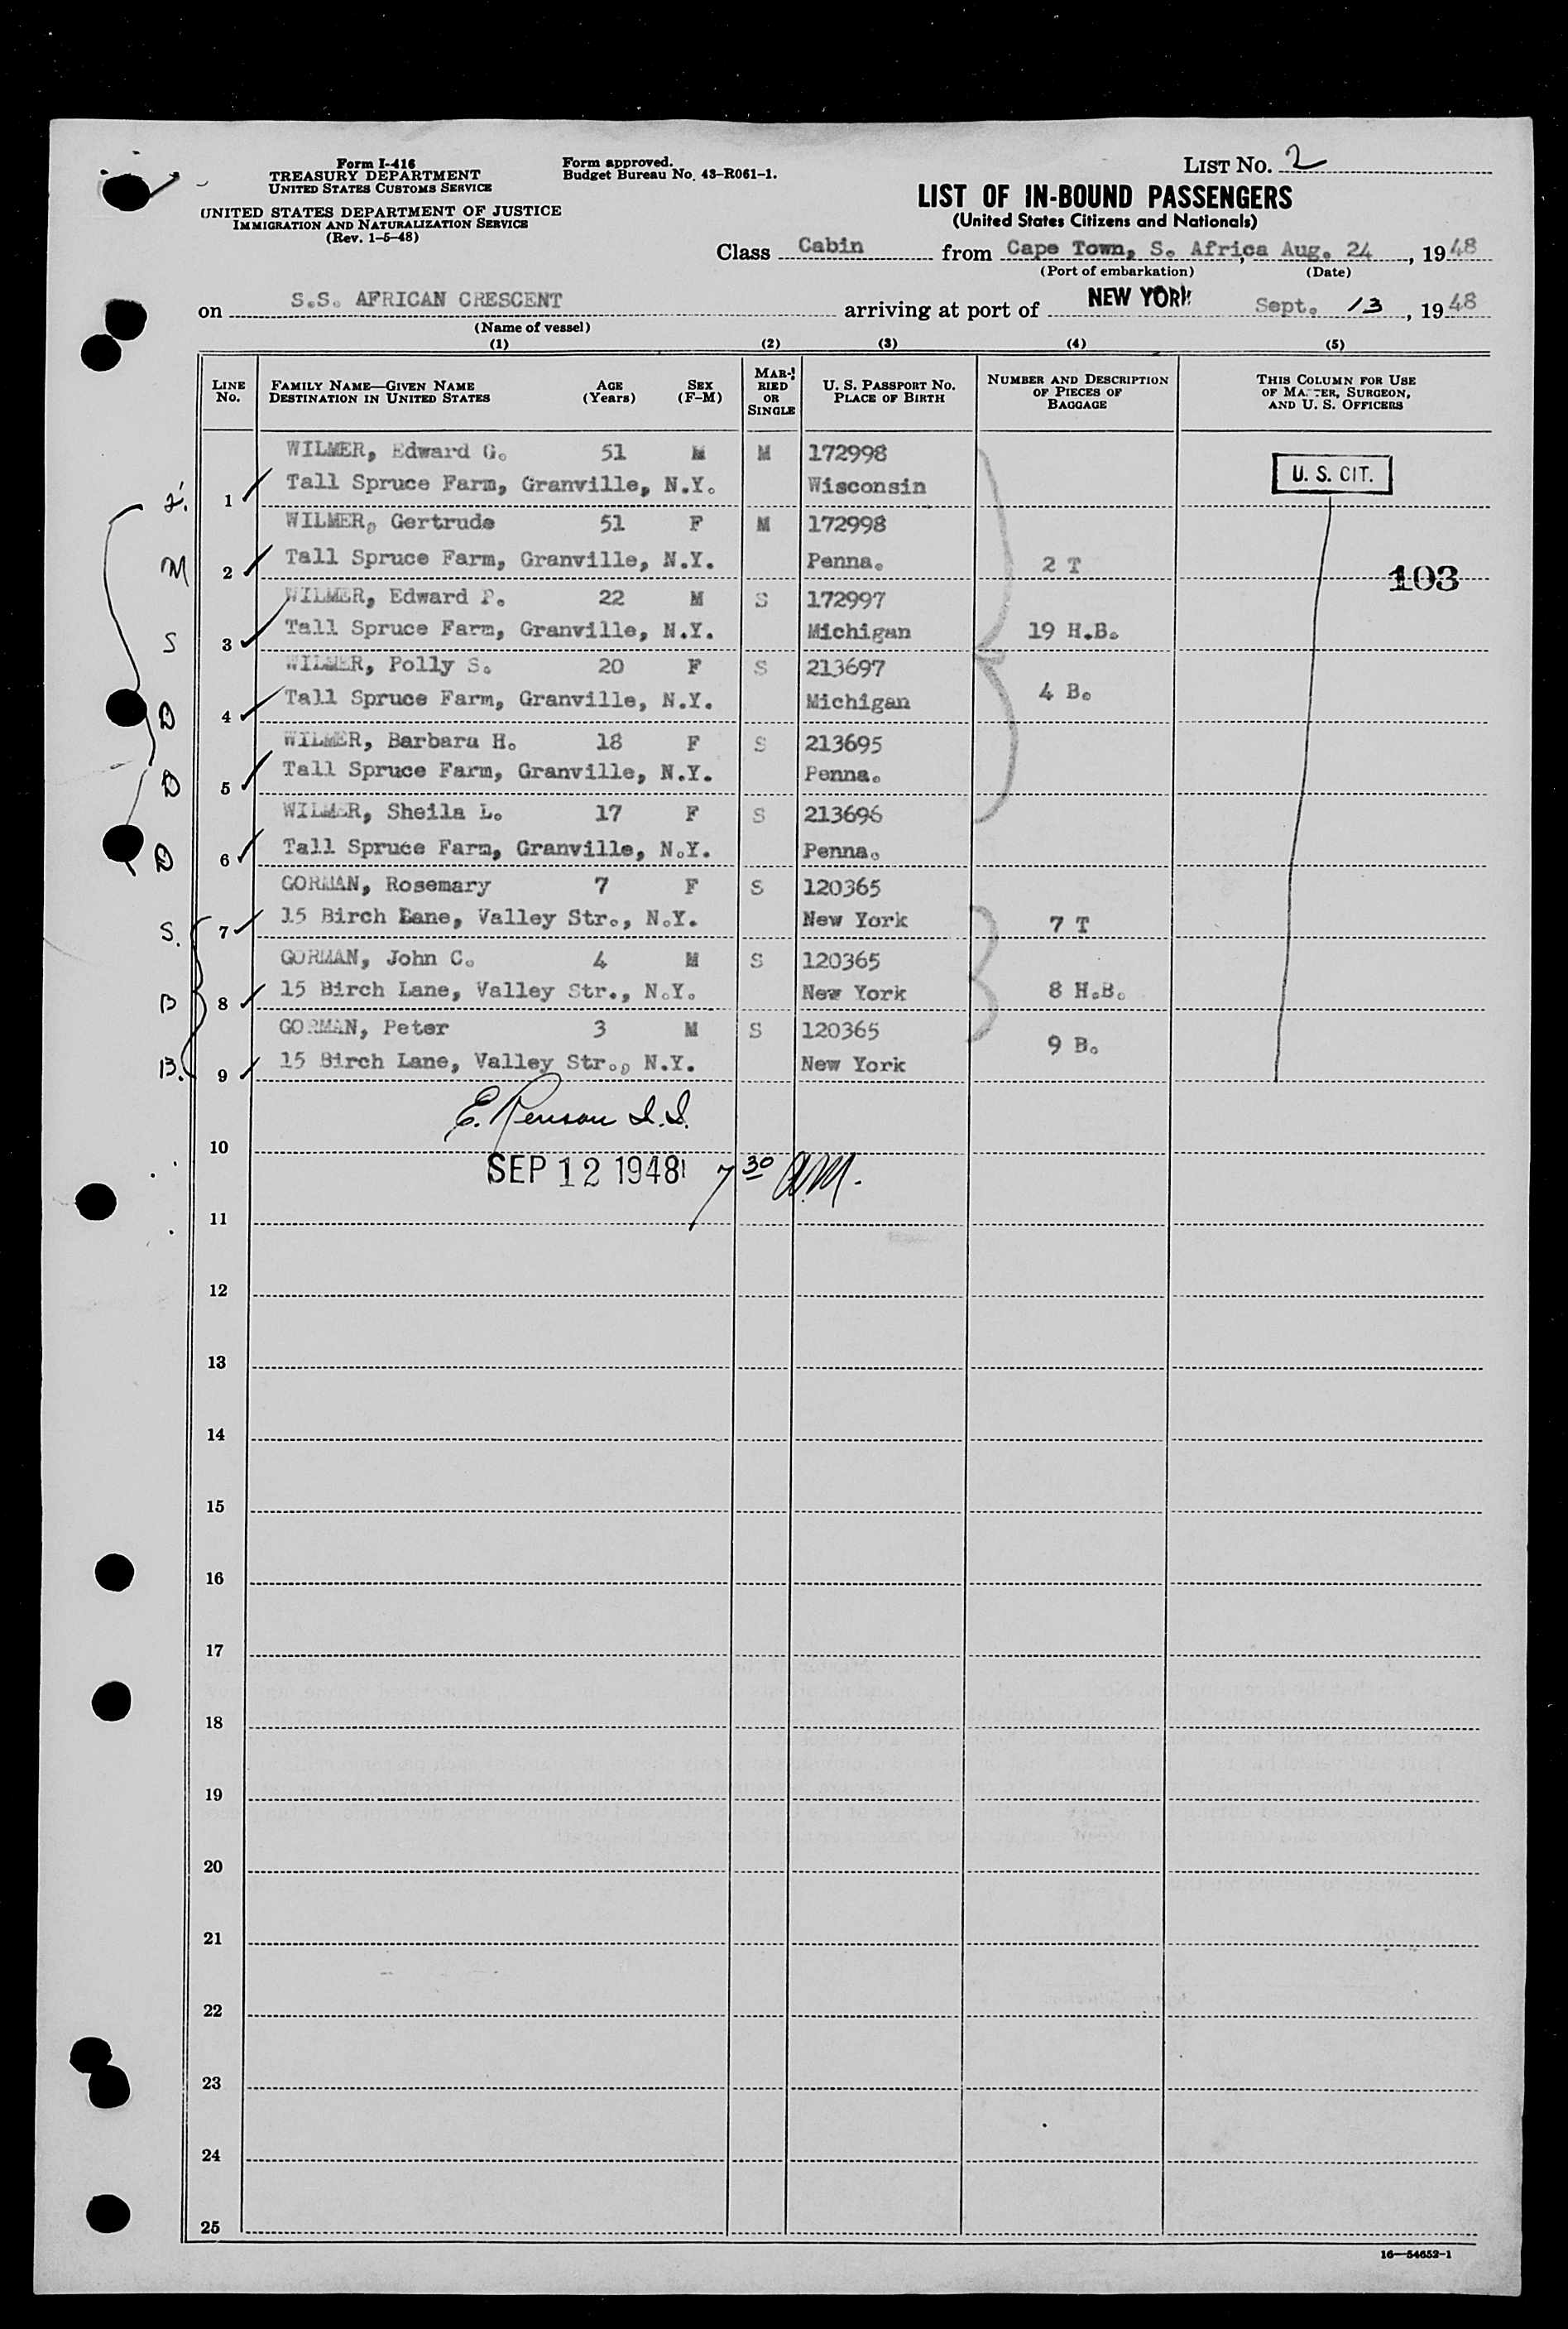 Form I-416
TREASURY DEPARTMENT
UNITED STATES CUSTOMS SERVICE
UNITED STATES DEPARTMENT OF JUSTICE
IMMIGRATION AND NATURALIZATION SERVICE
(Rev. 1-5-48)
Form approved.
Budget Bureau No. 43-R061-1.
LIST NO. 2
LIST OF IN-BOUND PASSENGERS
(United States Citizens and Nationals)
Class Cabin from Cape Town, S. Africa, Aug. 24, 1948
(Port of embarkation) (Date)
on S.S. AFRICAN CRESCENT arriving at port of NEW YORK Sept. 13, 1948
(Name of vessel)
(1) (2) (3) (4) (5)
LINE NO.
FAMILY NAME—GIVEN NAME
DESTINATION IN UNITED STATES
AGE
(Years)
SEX
(F-M)
MARRIED
OR
SINGLE
U. S. PASSPORT NO.
PLACE OF BIRTH
NUMBER AND DESCRIPTION
OF PIECES OF
BAGGAGE
THIS COLUMN FOR USE
OF MASTER, SURGEON,
AND U. S. OFFICERS
WILMER, Edward G. 51 M M 172998
U. S. CIT.
1 Tall Spruce Farm, Granville, N.Y. Wisconsin
WILMER, Gertrude 51 F M 172998
M 2 Tall Spruce Farm, Granville, N.Y. Penna. 2 T
103
WILMER, Edward P. 22 M S 172997
S 3 Tall Spruce Farm, Granville, N.Y. Michigan 19 H.B.
WILMER, Polly S. 20 F S 213697
D 4 Tall Spruce Farm, Granville, N.Y. Michigan 4 B.
WILMER, Barbara H. 18 F S 213695
D 5 Tall Spruce Farm, Granville, N.Y. Penna.
WILMER, Sheila L. 17 F S 213696
D 6 Tall Spruce Farm, Granville, N.Y. Penna.
GORMAN, Rosemary 7 F S 120365
S. 7 15 Birch Lane, Valley Str., N.Y. New York 7 T
GORMAN, John C. 4 M S 120365
B 8 15 Birch Lane, Valley Str., N.Y. New York 8 H.B.
GORMAN, Peter 3 M S 120365
9 B.
B. 9 15 Birch Lane, Valley Str., N.Y. New York
E. Renson I.I.
10
SEP 12 1948 7 30 A.M.
11
12
13
14
15
16
17
18
19
20
21
22
23
24
25
16—54652-1